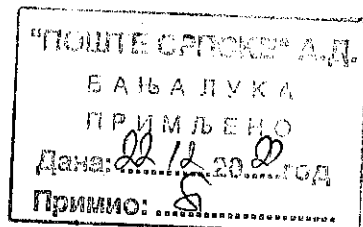 "ПОШТЕ СРПСКЕ" А.Д.
БАЊА ЛУКА
ПРИМЉЕНО
Дана: 22 12. 20 год
Примио: